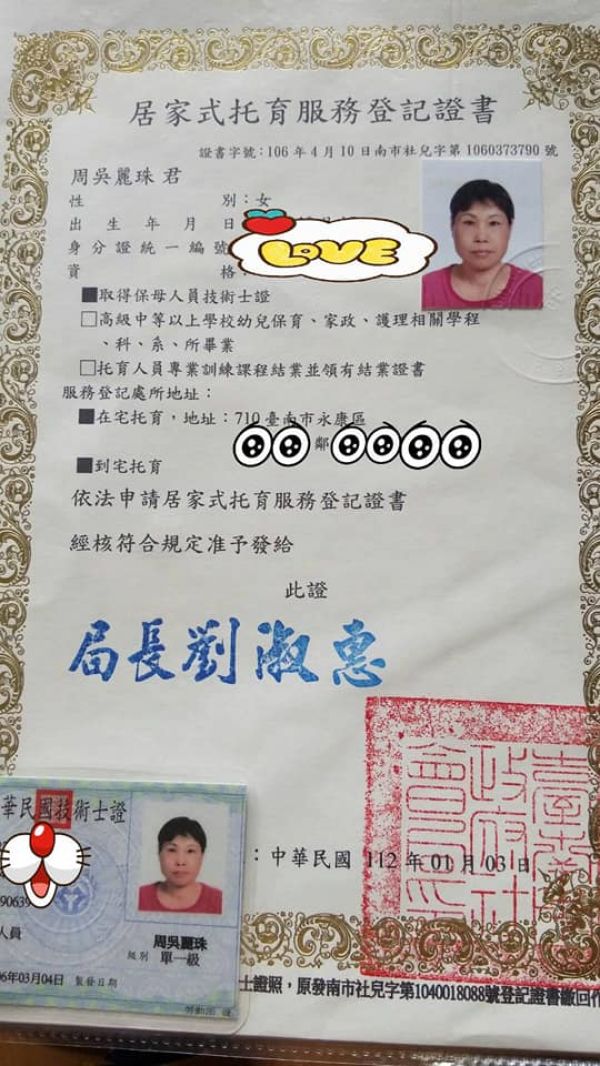 居家式托育服務登記證書
證書字號：106年4月10日南市社兒字第1060373790號
周吳麗珠 君
性 別：女
出生年月日
身分證統一編號
資 格：
■取得保母人員技術士證
□高級中等以上學校幼兒保育、家政、護理相關學程
、科、系、所畢業
□托育人員專業訓練課程結業並領有結業證書
服務登記處所地址：
■在宅托育，地址：710臺南市永康區
鄰
■到宅托育
依法申請居家式托育服務登記證書
經核符合規定准予發給
此證
局長劉淑惠
臺南市政府社會局印
：中華民國 112 年 01 月 03 日
士證照，原發南市社兒字第1040018088號登記證書繳回作
華民國技術士證
90639
人員
周吳麗珠
級別 單一級
06年03月04日 製發日期
LOVE